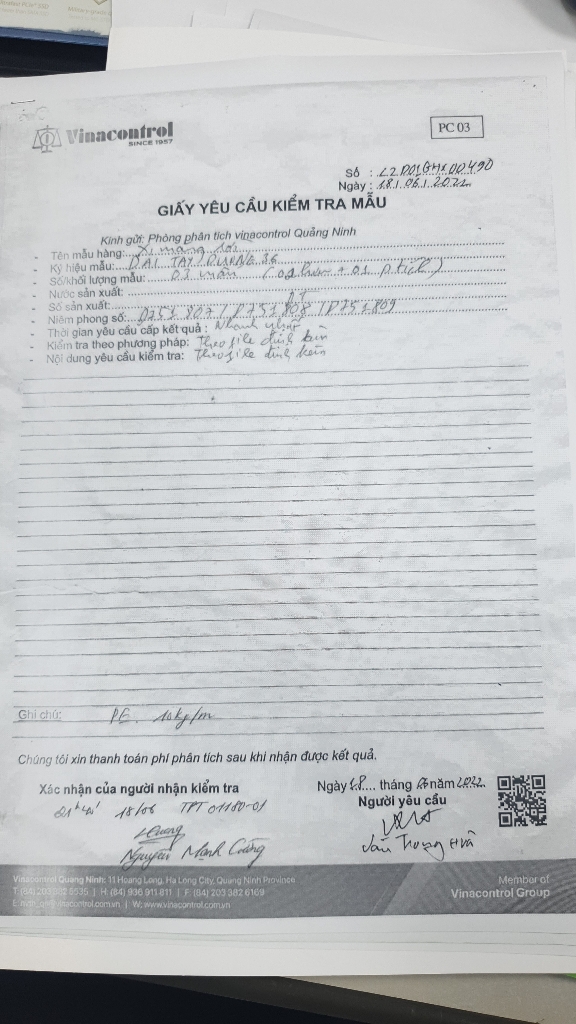 Vinacontrol
SINCE 1957
PC 03
Số : 22D01GH100490
Ngày : 18/06/2022
GIẤY YÊU CẦU KIỂM TRA MẪU
Kính gửi: Phòng phân tích vinacontrol Quảng Ninh
- Tên mẫu hàng: Xi măng rời
- Ký hiệu mẫu: ĐẠI TÂY DƯƠNG 36
- Số/khối lượng mẫu: 03 mẫu (02 lưu + 01 ptích)
- Nước sản xuất:
- Số sản xuất:
- Niêm phong số: D751807 / D751808 / D751809
- Thời gian yêu cầu cấp kết quả : Nhanh nhất
- Kiểm tra theo phương pháp: Theo file đính kèm
- Nội dung yêu cầu kiểm tra: Theo file đính kèm
Ghi chú: PE 10kg/m
Chúng tôi xin thanh toán phí phân tích sau khi nhận được kết quả.
Xác nhận của người nhận kiểm tra
Ngày 18 tháng 6 năm 2022
Người yêu cầu
18/06 TPT 01180-01
Nguyễn Mạnh Cường
Trọng
Vinacontrol Quảng Ninh: 11 Hoang Long, Ha Long City, Quang Ninh Province
Member of
Vinacontrol Group
T: (84) 203 382 5535 | H: (84) 936 911 811 | F: (84) 203 382 6169
W: www.vinacontrol.com.vn